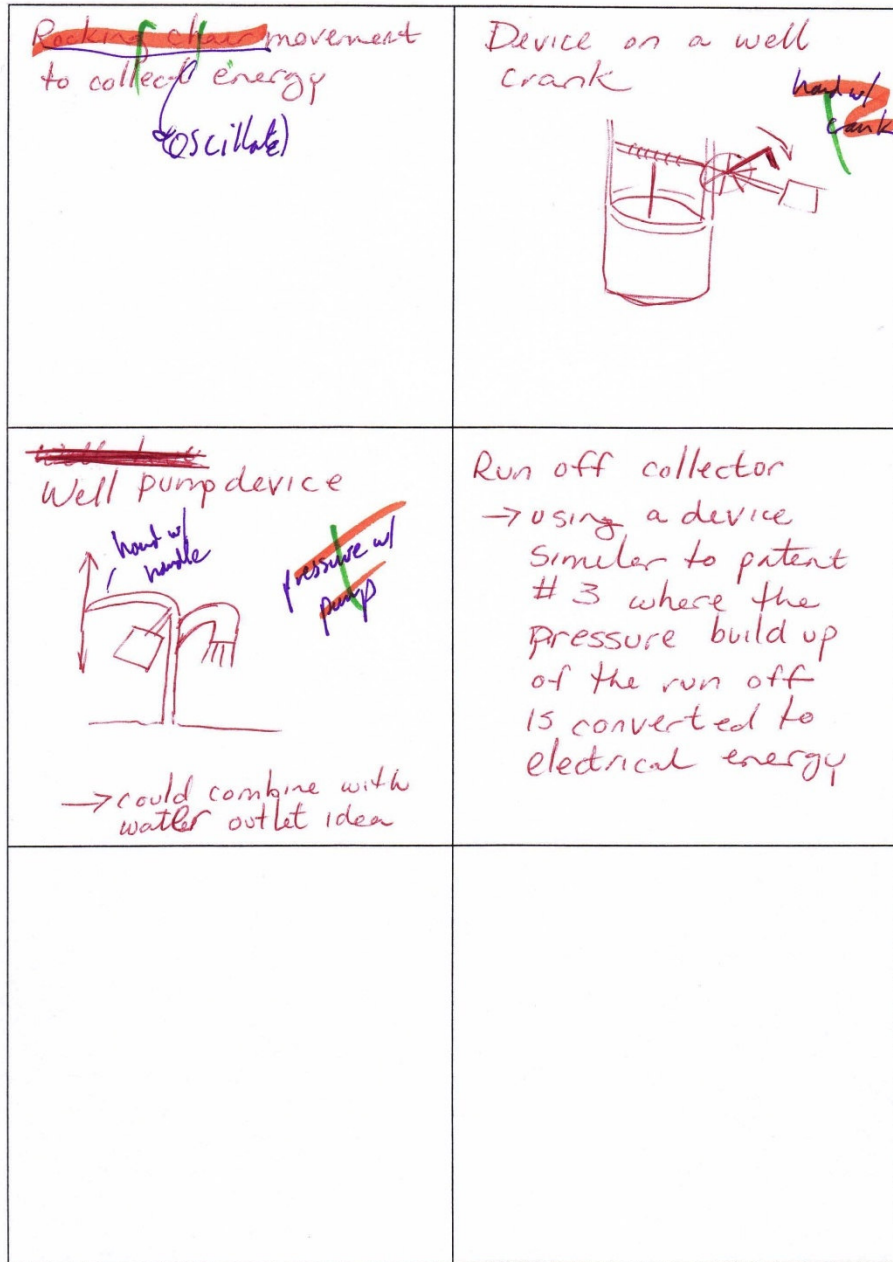 Rocking chair movement
to collect energy
(oscillate)
Device on a well
crank
hand w/
crank
Well pump device
hand w/
handle
pressure w/
pump
→ could combine with
water outlet idea
Run off collector
→ using a device
similar to patent
# 3 where the
pressure build up
of the run off
is converted to
electrical energy